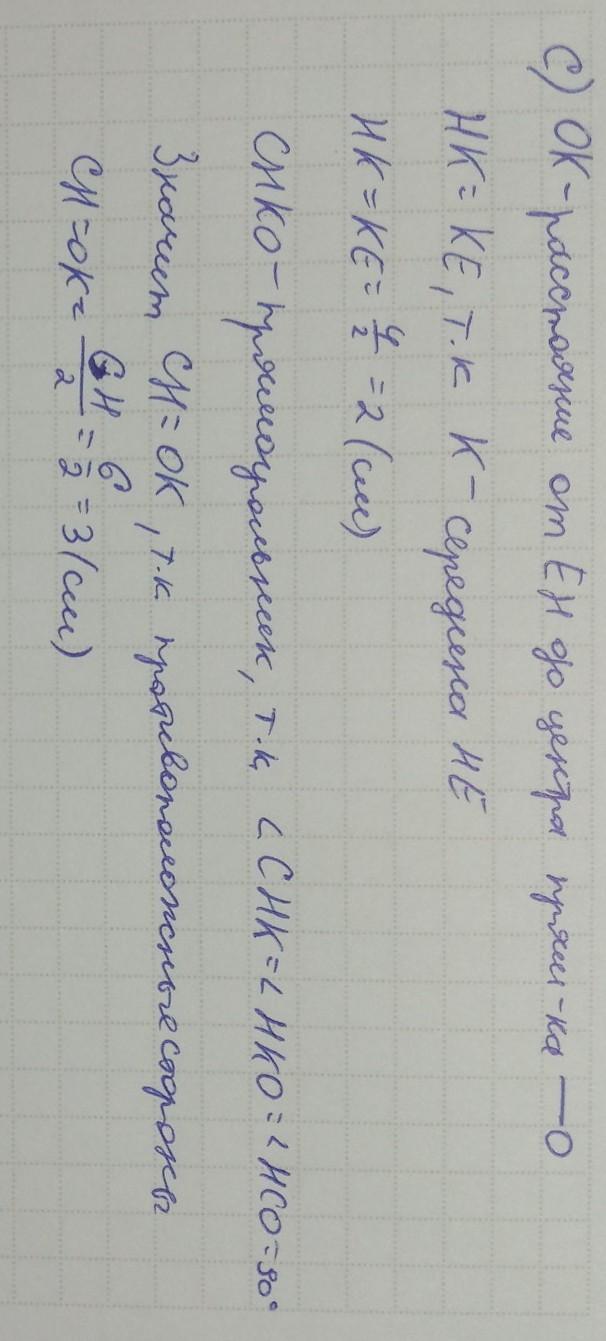 C) OK - расстояние от EH до центра прям-ка — O
HK = KE, т.к K - середина HE
HK = KE = 4/2 = 2 (см)
CHKO - прямоугольник, т.к. ∠CHK = ∠HKO = ∠HCO = 90°
Значит CH = OK, т.к. противоположные стороны
CH = OK = GH/2 = 6/2 = 3 (см)